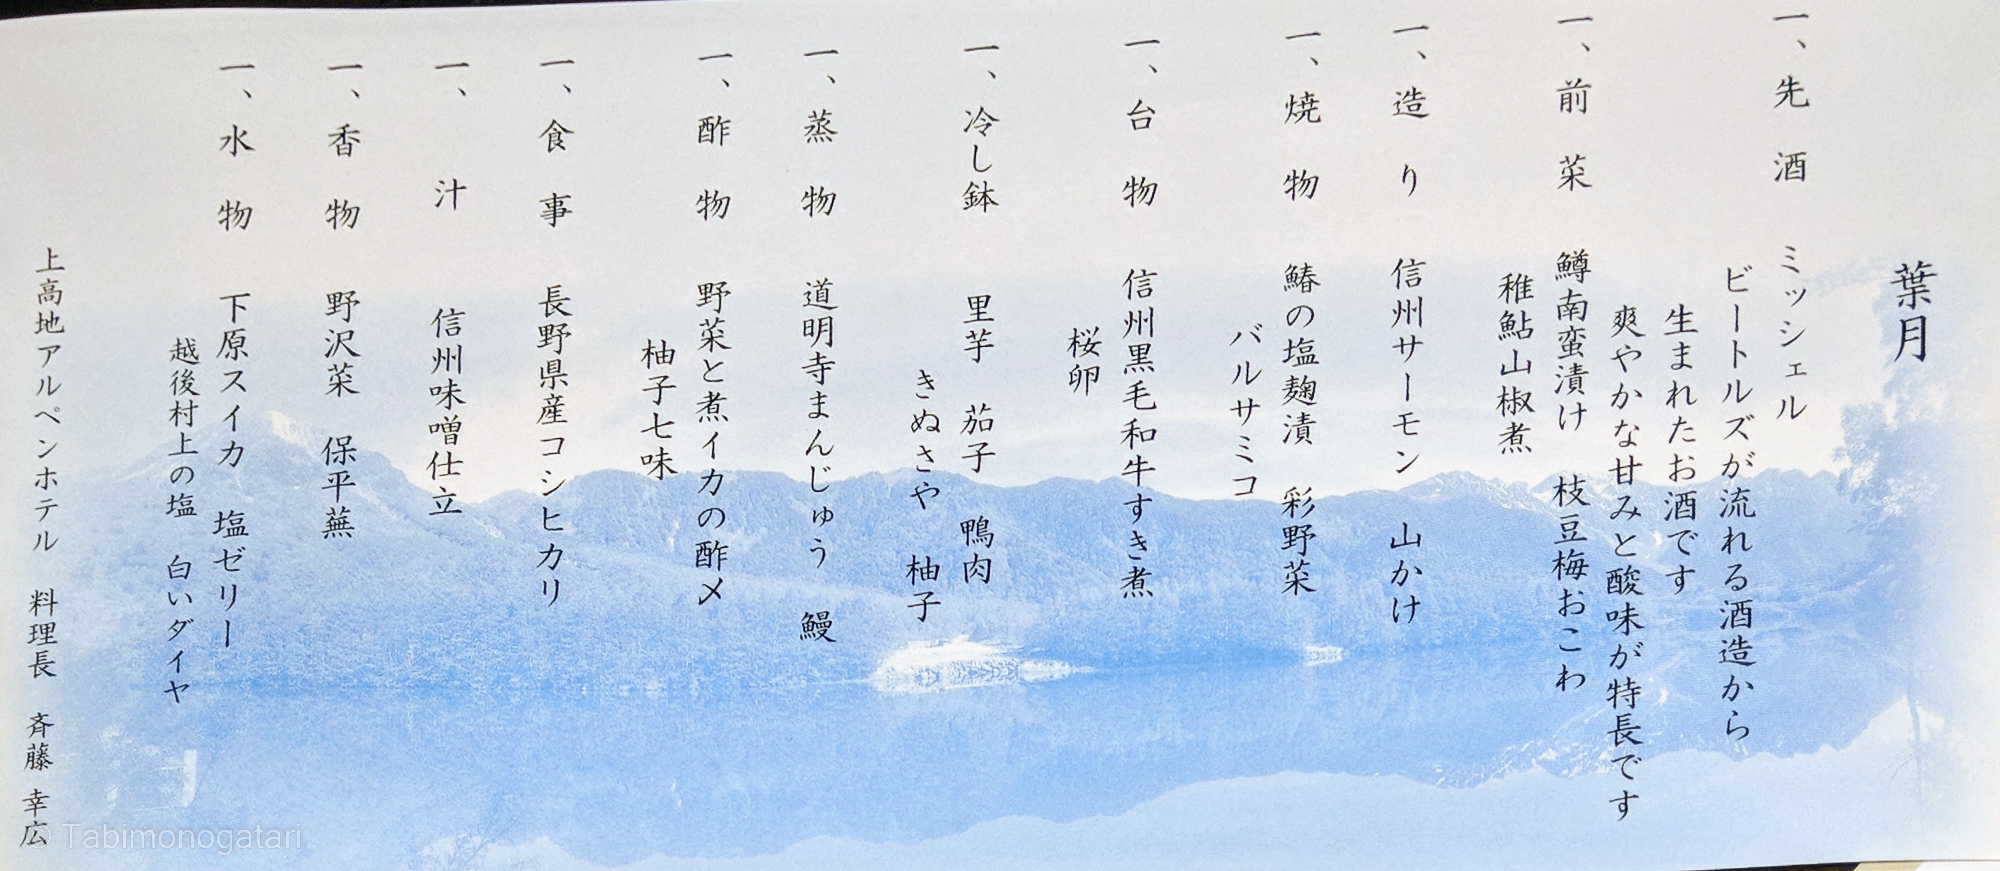 葉月
一、先酒 ミッシェル
ビートルズが流れる酒造から
生まれたお酒です
爽やかな甘みと酸味が特長です
一、前菜 鱒南蛮漬け 枝豆梅おこわ
稚鮎山椒煮
一、造り 信州サーモン 山かけ
一、焼物 鰆の塩麹漬 彩野菜
バルサミコ
一、台物 信州黒毛和牛すき煮
桜卵
一、冷し鉢 里芋 茄子 鴨肉
きぬさや 柚子
一、蒸物 道明寺まんじゅう 鰻
一、酢物 野菜と煮イカの酢〆
柚子七味
一、食事 長野県産コシヒカリ
一、汁 信州味噌仕立
一、香物 野沢菜 保平蕪
一、水物 下原スイカ 塩ゼリー
越後村上の塩 白いダイヤ
上高地アルペンホテル 料理長 斉藤 幸広
© Tabimonogatari